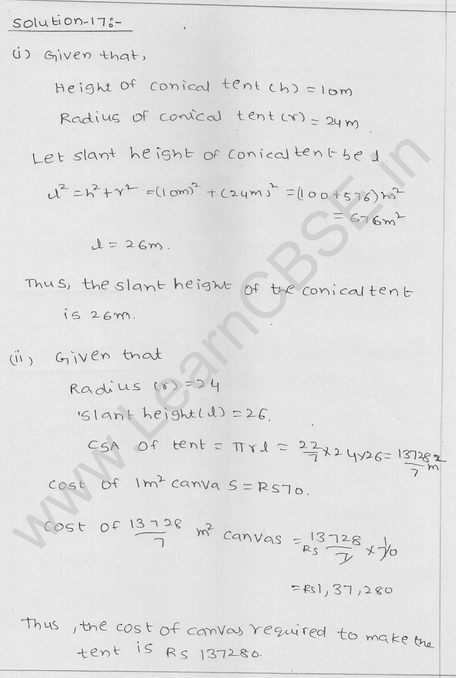 Solution-17:-
(i) Given that,
Height of conical tent (h) = 10m
Radius of conical tent (r) = 24m
Let slant height of conical tent be l
l² = h² + r² = (10m)² + (24m)² = (100+576)m²
= 676m²
l = 26m.
Thus, the slant height of the conical tent
is 26m.
(ii) Given that
Radius (r) = 24
Slant height (l) = 26.
CSA of tent = πrl = 22/7 × 24 × 26 = 13728/7 m²
Cost of 1m² canvas = RS70.
Cost of 13728/7 m² canvas = Rs 13728/7 × 70
= RS1,37,280
Thus, the cost of canvas required to make the
tent is RS 137280.
www.LearnCBSE.in